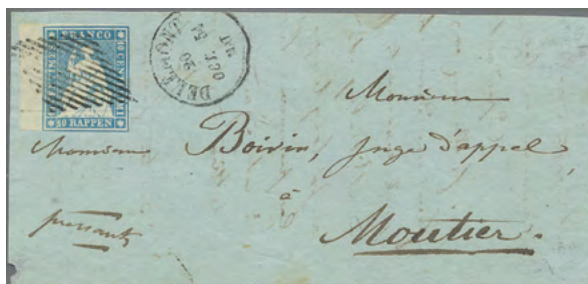 FRANCO
10 RAPPEN
DELEMONT
20
OCT. 54
Monsieur
Monsieur Boivin, Juge d'appel
à
pressante
Moutier.